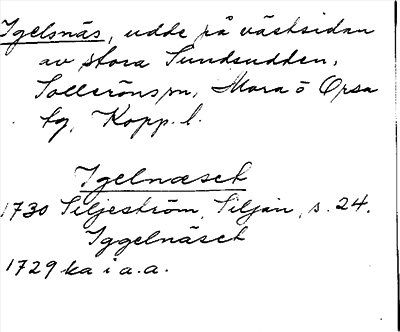 Igelsnäs, udde på västsidan
av stora Sundsudden,
Solleröns sn, Mora o Orsa
tg, Kopp. l.
Igelnæset
1730 Siljeström, Siljan, s. 24.
Iggelnäset
1729 ka i a.a.